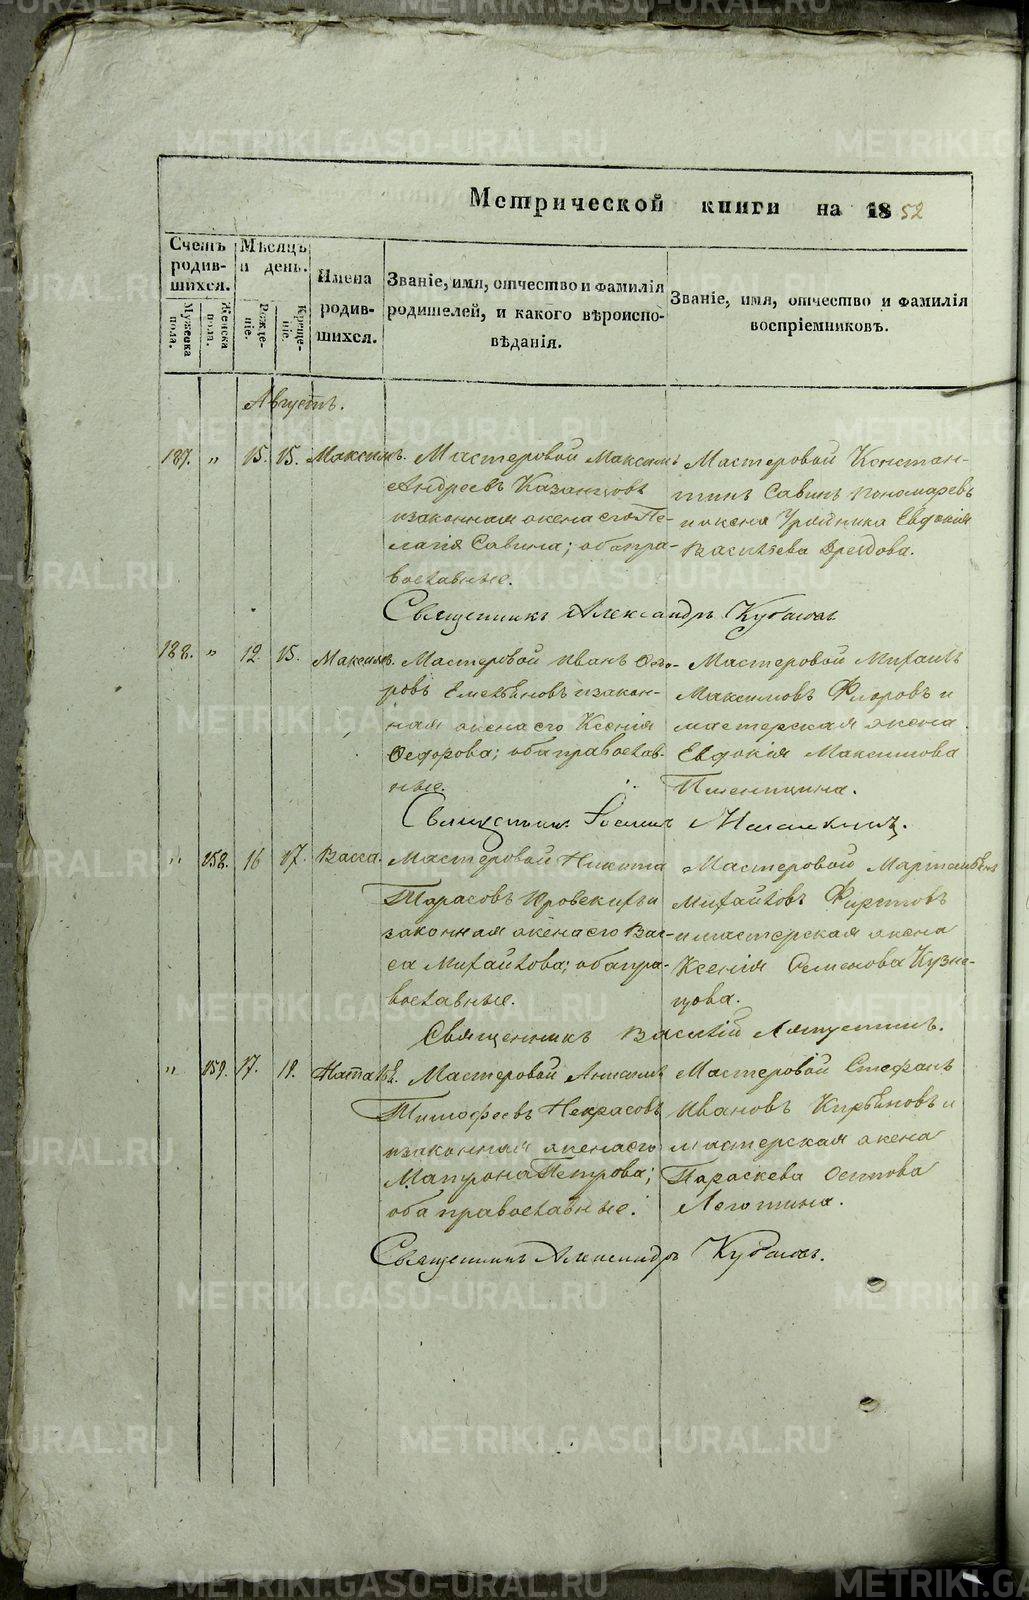 METRIKI.GASO-URAL.RU
Метрической книги на 1852
Счетъ родив-шихся.
Мужеска пола.
Женска пола.
Мѣсяцъ и день.
Рожде-ніе.
Креще-ніе.
Имена родив-шихся.
Званіе, имя, отчество и фамилія родителей, и какого вѣроиспо-вѣданія.
Званіе, имя, отчество и фамилія воспріемниковъ.
Августъ.
187. " 15. 15. Максимъ. Мастеровой Максимъ
Андреевъ Казанцовъ
и законная жена его Пе-
лагія Савина; оба пра-
вославные.
Мастеровой Констан-
тинъ Савинъ Пономаревъ
и жена Урядника Евдокія
Васильева
Священникъ Александръ
188. " 12. 15. Максимъ. Мастеровой Иванъ Ѳедо-
ровъ Емельяновъ и закон-
ная жена его Ксенія
Ѳедорова; оба православ-
ные.
Мастеровой Михаилъ
Максимовъ Флоровъ и
мастерская жена
Евдокія Максимова
Пшеницына.
Священникъ
" 158. 16 17. Васса. Мастеровой Никита
Тарасовъ Юровскихъ и
законная жена его Вас-
са Михайлова; оба пра-
вославные.
Мастеровой
Михайловъ Фирстовъ
и мастерская жена
Ксенія Семенова Кузне-
цова.
Священникъ Василій Ляпустинъ.
" 159. 17. 18. Наталья. Мастеровой
Тимофеевъ Некрасовъ
и законная жена его
Матрона Петрова;
оба православные.
Мастеровой Стефанъ
Ивановъ Кирьяновъ и
мастерская жена
Параскева Осипова
Леготина.
Священникъ Александръ